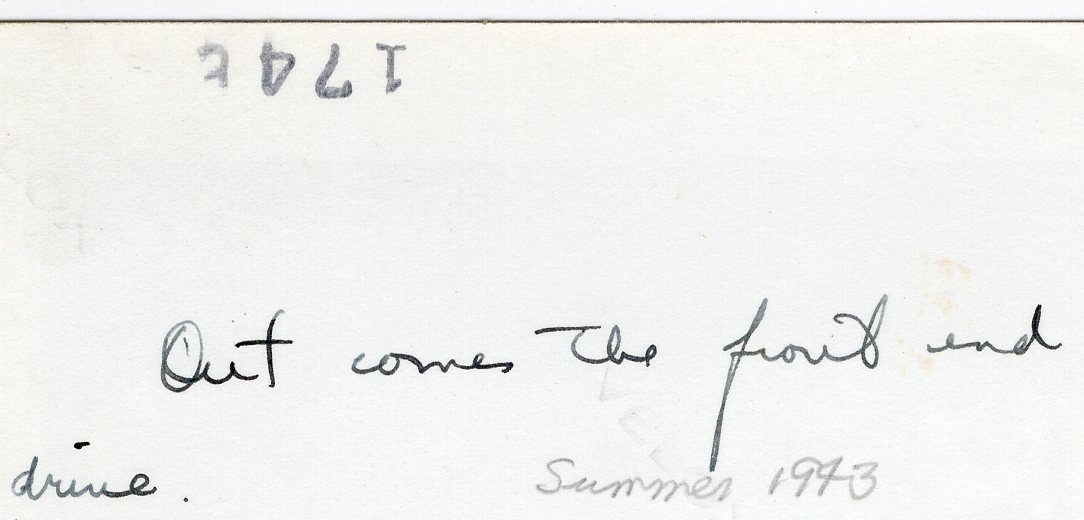 Out comes the front end
drive.
Summer 1943